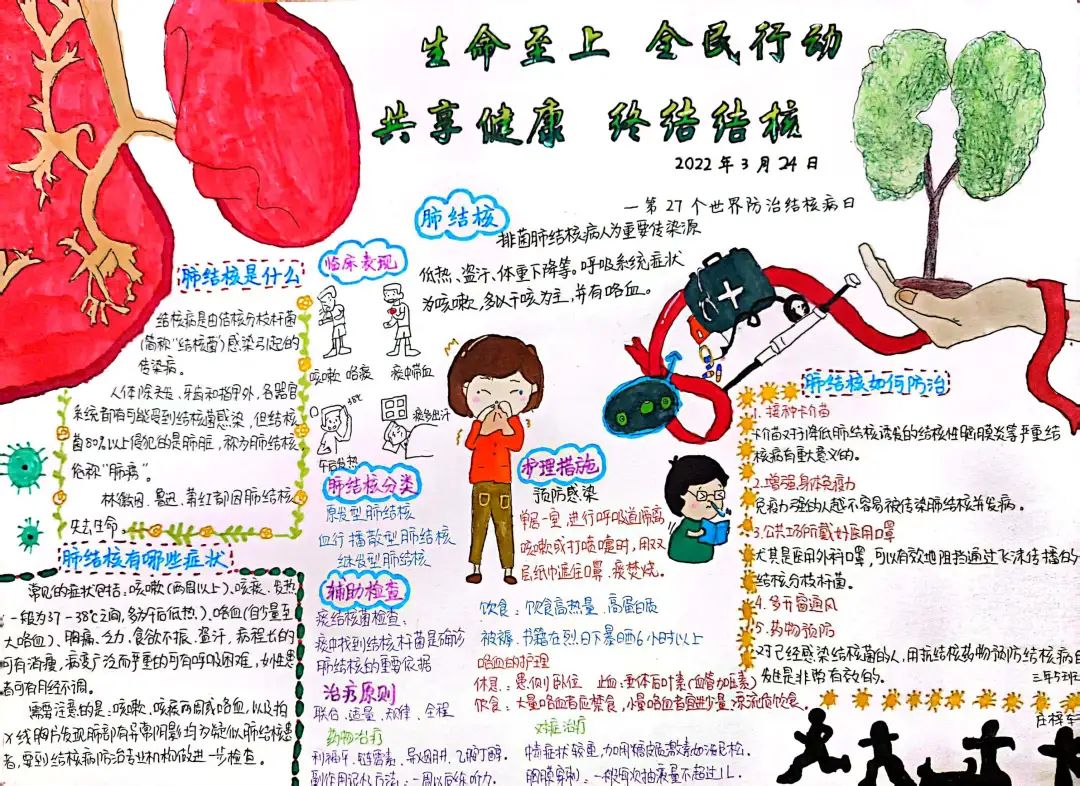 生命至上 全民行动
共享健康 终结结核
2022年3月24日
—第27个世界防治结核病日
肺结核
排菌肺结核病人为重要传染源
低热、盗汗、体重下降等。呼吸系统症状
为咳嗽,多以干咳为主,并有咯血。
肺结核是什么
结核病是由结核分枝杆菌
(简称"结核菌)感染引起的
传染病。
人体除毛发、牙齿和指甲外,各器官
系统都有可能得到结核菌感染,但结核
菌80%以上侵犯的是肺脏,称为肺结核,
俗称"肺痨"。
林徽因、鲁迅、萧红都因肺结核
失去生命
肺结核有哪些症状
常见的症状包括:咳嗽(两周以上)、咳痰、发热
(一般为37-38℃之间,多为午后低热)、咯血(自少量至
大咯血)、胸痛、乏力、食欲不振、盗汗,病程长的
可有消瘦,病变广泛而严重的可有呼吸困难,女性患
者可有月经不调。
需要注意的是:咳嗽、咳痰两周或咯血,以及拍
X线胸片发现肺部有异常阴影均为疑似肺结核患
者,要到结核病防治专业机构做进一步检查。
临床表现
咳嗽 咯痰 痰中带血
38℃
午后发热
肺结核分类
原发型肺结核
血行播散型肺结核
继发型肺结核
辅助检查
痰结核菌检查:
痰中找到结核杆菌是确诊
肺结核的重要依据
治疗原则
联合、适量、规律、全程
药物治疗
利福平、链霉素、异烟肼、乙胺丁醇.
一周以后练听力.
护理措施
预防感染
单居一室,进行呼吸道隔离
咳嗽或打喷嚏时,用双
层纸巾遮住口鼻.痰焚烧.
饮食:饮食高热量,高蛋白质
被褥.书籍在烈日下暴晒6小时以上
咯血的护理
休息:患侧卧位 止血:垂体后叶素(血管加压素)
饮食:大量咯血者应禁食,小量咯血者宜进少量凉流质饮食.
对症治疗
胸膜穿刺:一般每次抽液量不超过1L.
肺结核如何防治
1.接种卡介苗
卡介苗对于降低肺结核诱发的结核性脑膜炎等严重结
核病有重大意义的。
2.增强身体免疫力
免疫力强的人越不容易被传染肺结核并发病。
3.公共场所戴好医用口罩
尤其是医用外科口罩,可以有效地阻挡通过飞沫传播的
结核分枝杆菌。
4.多开窗通风
5.药物预防
对于已经感染结核菌的人,用抗结核药物预防结核病的
发生是非常有效的。
三年5班